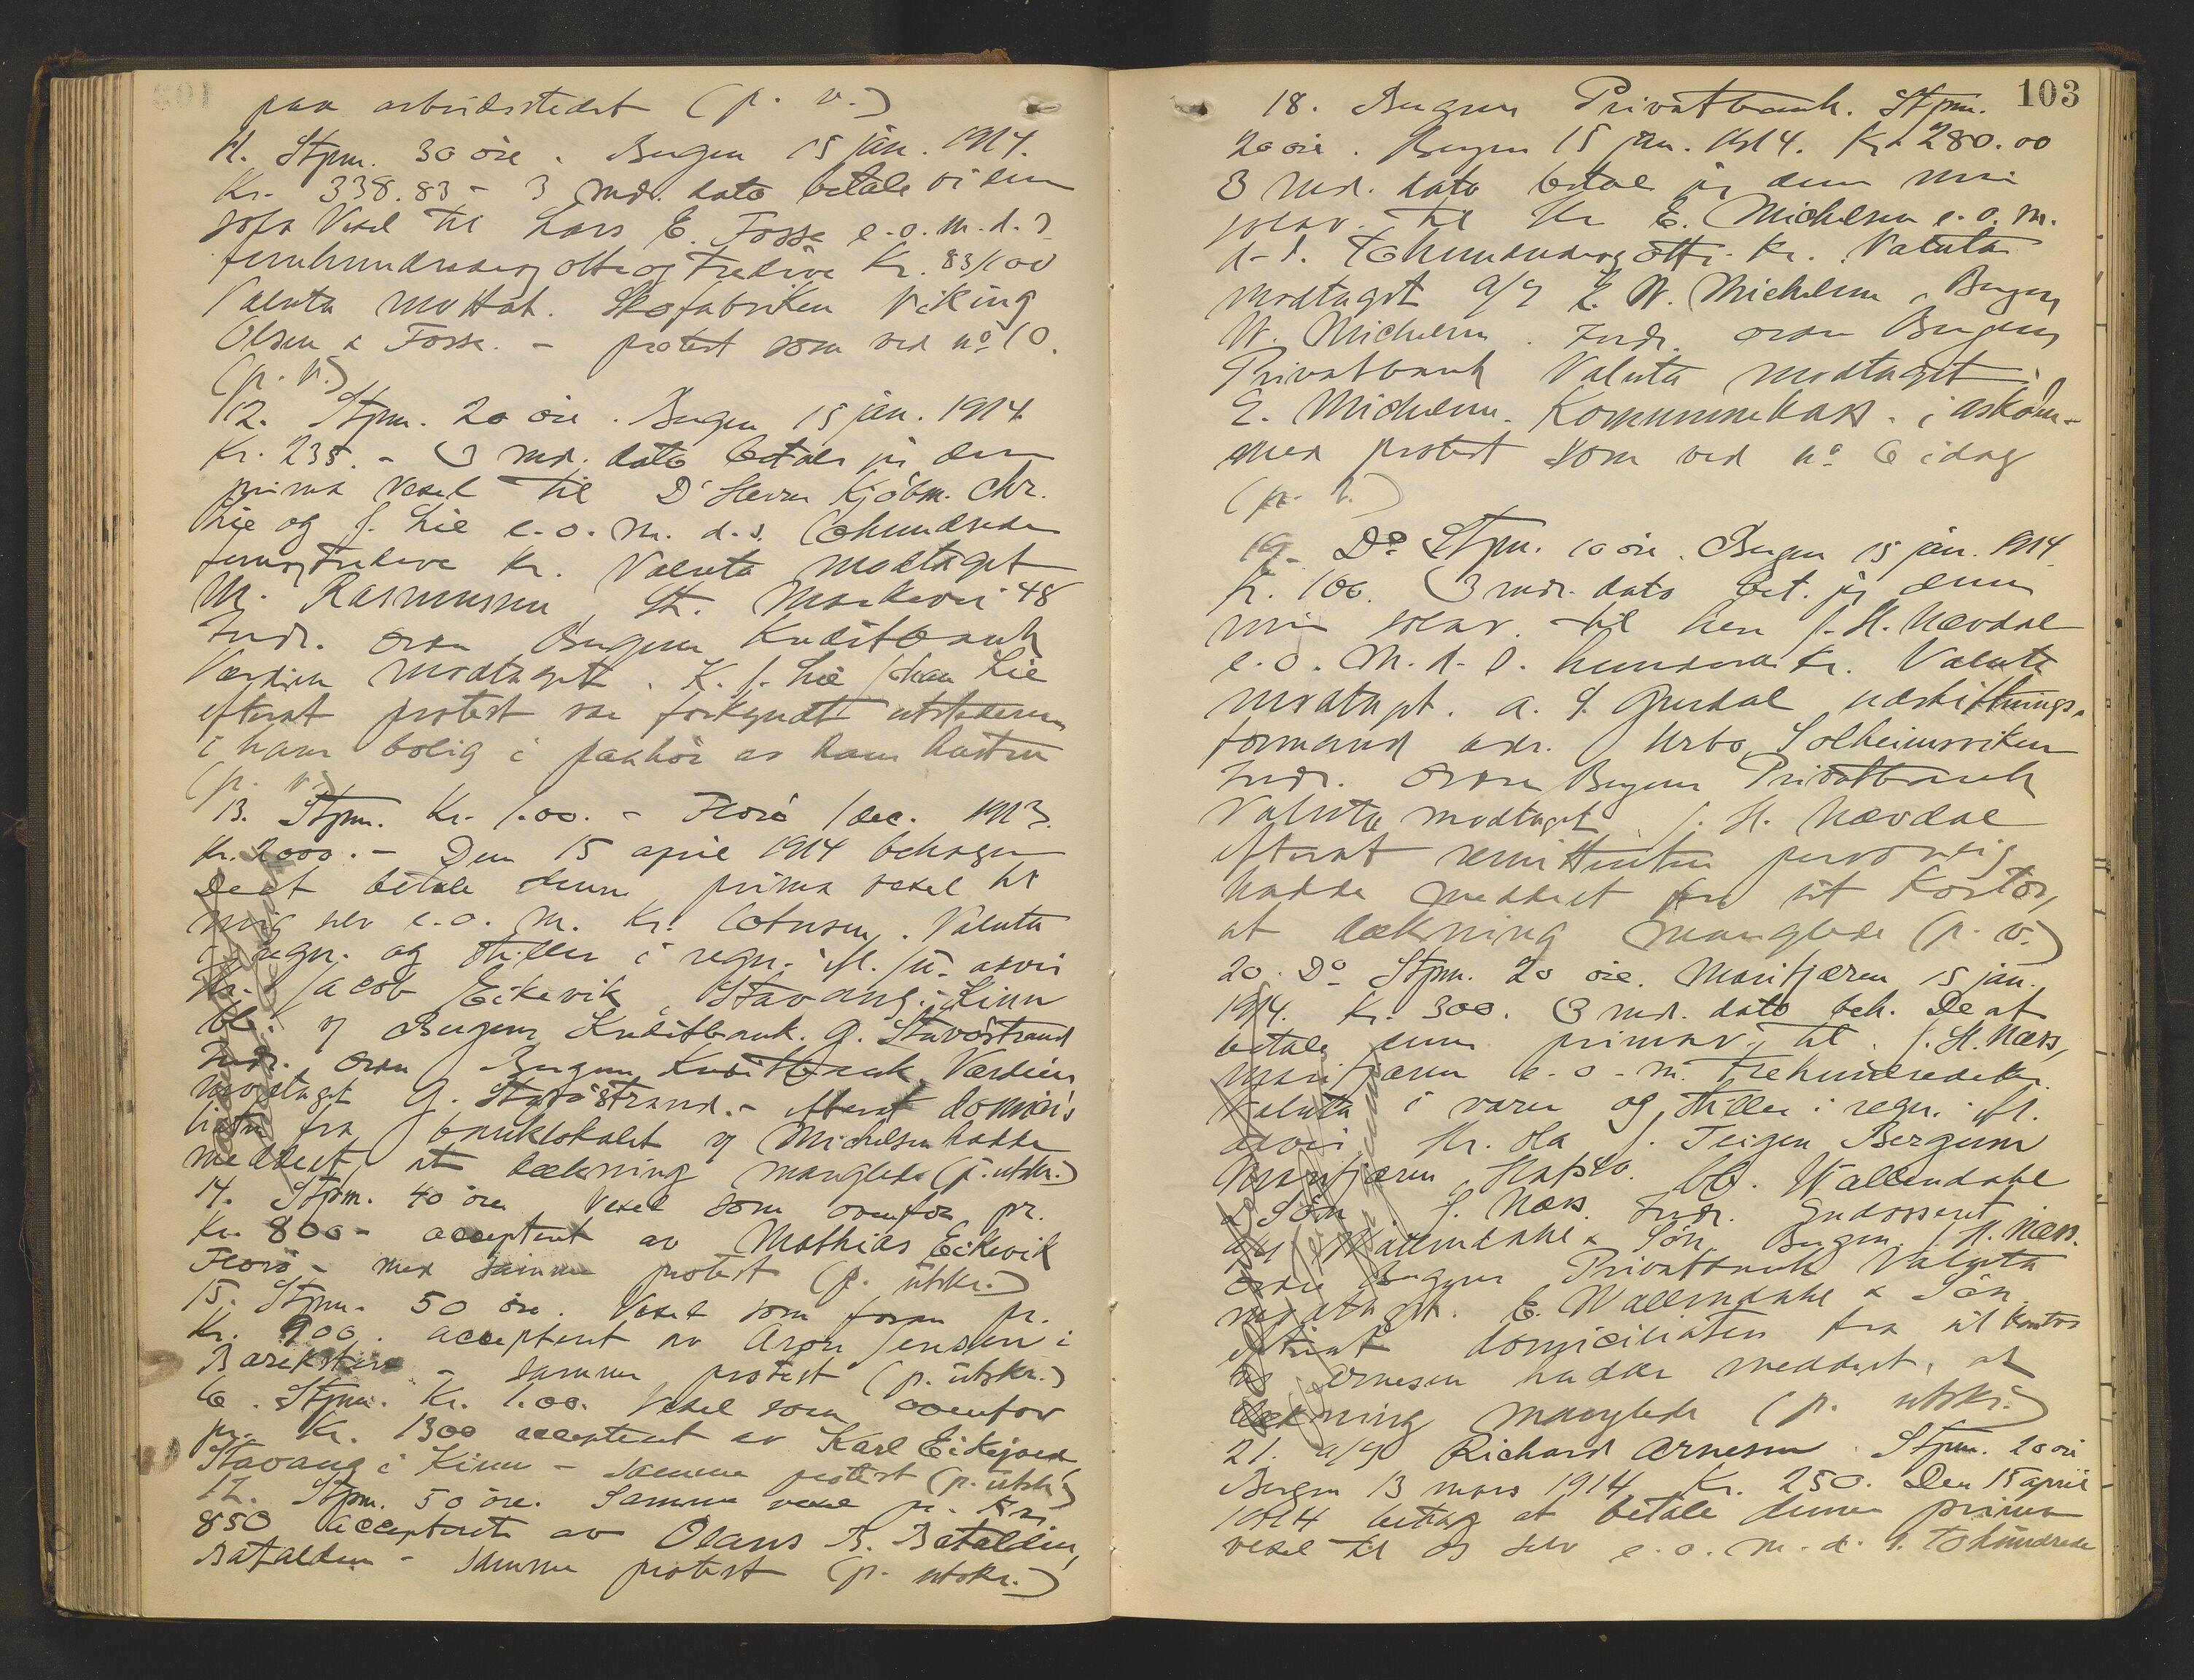 paa arbeidsstedet (p. v.)
11. Stpm. 30 öre. Bergen 15 jan. 1914.
Kr. 338.83 - 3 mdr. dato betale vi denne
sola Vexel til Lars E. Fosse e. o. m. d. s.
trehundredeog otteogtredive Kr. 83/100
Valuta mottat. Skofabriken Viking
Olsen & Fosse. - protest som ved no 10.
(p. v.)
12. Stpm. 20 öre. Bergen 15 jan. 1914
Kr. 235. - 3 mdr. dato betaler jeg denne
prima Vexel til D'Herrer Kjöbm. Chr.
Lie og J. Lie e. o. m. d. s. tohundrede
femogtredive Kr. Valuta modtaget
M. Rasmussen St. Markevei 48
Indr. ordre Bergens Kreditbank
Værdien modtaget. K. J. Lie Johan Lie
efterat protest var forkyndt utstederen
i hans bolig i paahör av hans hustru
(p. v.)
13. Stpm. Kr. 1.00. - Florö 1 dec. 1913.
Kr. 2000. - Den 15 april 1914 behager
De at betale denne prima vexel til
mig selv e. o. m. Kr. totusen. Valuta
i regn. og stilles i regn. ifl. advis
Hr. Jacob Eikevik, Stavang i Kinn
bet. v/ Bergens Kreditbank. G. Stavöstrand
Indr. ordre Bergens Kreditbank Værdien
modtaget G. Stavöstrand. - efterat domici-
liaten fra banklokalet v/ Michelsen hadde
meddelt, at dækning manglede (p. utskr.)
14. Stpm. 40 öre Vexel som ovenfor pr.
Kr. 800 - acceptert av Mathias Eikevik
Florö - med samme protest (p. utskr.)
15. Stpm. 50 öre. Vexel som foran pr.
Kr. 900. acceptert av Aron Jensen i
Barekstad - samme protest (p. utskr.)
16. Stpm. Kr. 1.00. Vexel som ovenfor
pr. Kr. 1300 acceptert av Karl Eikejord,
Stavang i Kinn - samme protest (p. utskr.)
17. Stpm. 50 öre. Samme vexel pr. Kr.
850 acceptert av Olaus B. Batalden,
Batalden - samme protest (p. utskr.)
103
18. Bergens Privatbank. Stpm.
20 öre. Bergen 15 jan. 1914. Kr. 280.00
3 mdr. dato betal jeg denne min
solav. til Hr E. Michelsen e. o. m.
d. s. tohundredeogotti Kr. Valuta
modtaget a/s E. W. Michelsen, Bergen
W. Michelsen. Indr. ordre Bergens
Privatbank Valuta modtaget
E. Michelsen. Kommunekass. i Asköen -
med protest som ved no 6 idag
(p. v.)
19. Do Stpm. 10 öre. Bergen 15 jan. 1914
Kr. 100. 3 mdr. dato bet. jeg denne
min solav. til herr J. H. Nævdal
e. o. m. d. s. hundrede Kr. Valuta
modtaget. A. J. Gjerdal utskiftnings-
formand adr. Urbo, Solheimsviken
Indr. ordre Bergens Privatbank
Valuta modtaget J. H. Nævdal
efterat remittenten personlig
hadde meddelt fra sit kontor,
at dækning manglede (p. v.)
20. Do Stpm. 20 öre. Marifjæren 15 jan.
1914. Kr. 300. 3 mdr. dato beh. De at
betale denne primav. til J. H. Næss,
Marifjæren e. o. m. trehundredekr.
Valuta i varer og stilles i regn. ifl.
advis Hr. Ola J. Teigen Bergum
Marifjæren, Hafslo. bet. Wallendahl
& Sön J. Næss. Indr. Endosseret
a/s Wallendahl & Sön Bergen J. H. Næss.
ordre Bergens Privatbank Valuta
modtaget. E. Wallendahl & Sön
efterat domiciliaten fra sit kontor
v/ Arnesen hadde meddelt, at
dækning manglede (p. utskr.)
21. a/s Richard Arnesen. Stpm. 20 öre
Bergen 13 mars 1914 Kr. 250. Den 15 april
1914 behag at betale denne prima
vexel til os selv e. o. m. d. s. tohundrede